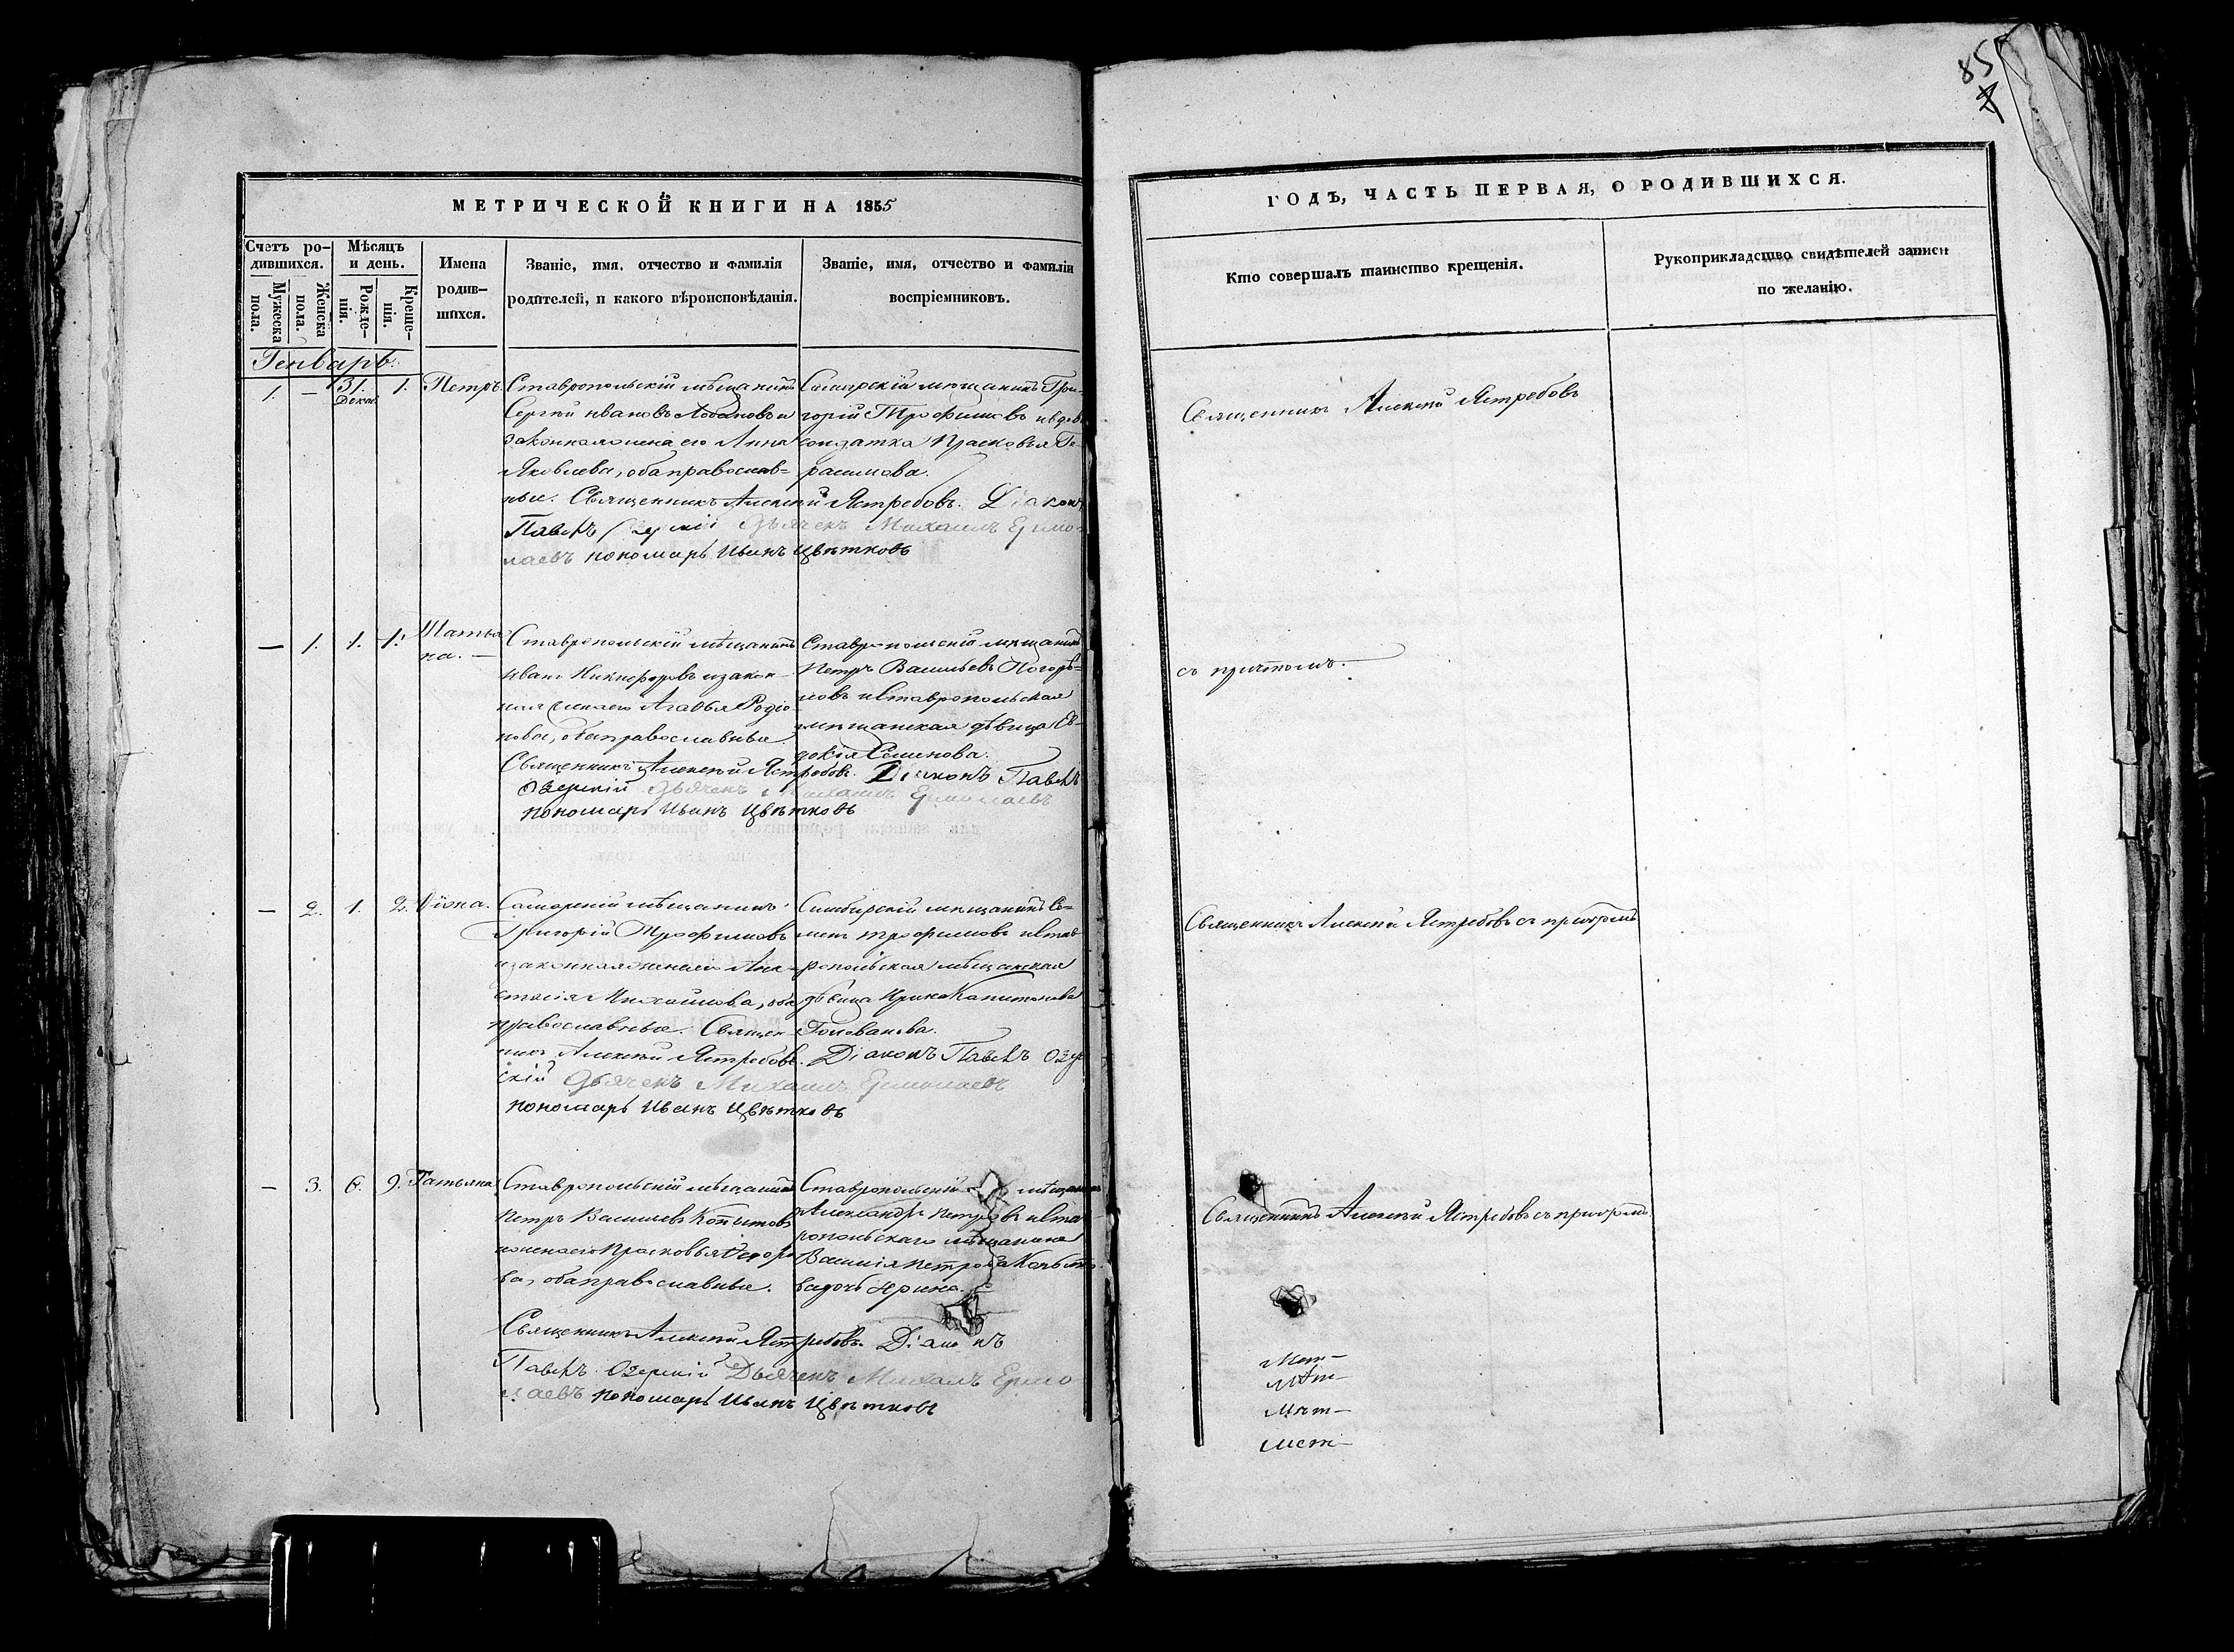 МЕТРИЧЕСКОЙ КНИГИ НА 1855
Счетъ ро-
дившихся.
Мужеска
пола.
Женска
пола.
Мѣсяцъ
и день.
Рожде-
нія.
Креще-
нія.
Имена
родив-
шихся.
Званіе, имя, отчество и фамилія
родителей, и какого вѣроисповѣданія.
Званіе, имя, отчество и фамиліи
воспріемниковъ.
Генварь.
1. — 31. Декаб. 1. Петръ.
Ставропольскій мѣщанинъ
Сергѣй Ивановъ Лобановъ и
законная жена его Анна
Яковлева, оба православ-
ные.
Самарскій мѣщанинъ Гри-
горій Трофимовъ и вдова
солдатка Прасковья Ге-
расимова.
Священникъ Алексѣй Ястребовъ. Діаконъ
Павелъ Озерскій Дьячекъ Михаилъ Ермо-
лаевъ пономарь Иванъ Цвѣтковъ
— 1. 1. 1. Татья-
на. —
Ставропольскій мѣщанинъ
Иванъ Никифоровъ и закон-
ная жена его Агафья Родіо-
нова, оба православные.
Ставропольскій мѣщанинъ
Петръ Васильевъ
и Ставропольская
мѣщанская дѣвица Ев-
докія Семенова.
Священникъ Алексѣй Ястребовъ. Діаконъ Павелъ
Озерскій Дьячекъ Михаилъ Ермолаевъ
пономарь Иванъ Цвѣтковъ
— 2. 1. 2.
Самарскій мѣщанинъ
Григорій Трофимовъ
и законная жена его Ана-
стасія Михайлова, оба
православные.
Симбирскій мѣщанинъ Се-
менъ Трофимовъ и Став-
ропольская мѣщанская
дѣвица Ирина Капитонова
Голованова.
Священ-
никъ Алексѣй Ястребовъ. Діаконъ Павелъ Озер-
скій Дьячекъ Михаилъ Ермолаевъ
пономарь Иванъ Цвѣтковъ
— 3. 6. 9. Татьяна
Ставропольскій мѣщанинъ
Петръ Васильевъ Копытовъ
и жена его Прасковья Федоро-
ва, оба православные.
Ставропольскій мѣщанинъ
Александръ Петровъ и Став-
ропольскаго мѣщанина
Василія Петрова Копыто-
ва дочь Ирина.
Священникъ Алексѣй Ястребовъ. Діаконъ
Павелъ Озерскій Дьячекъ Михаилъ Ермо-
лаевъ пономарь Иванъ Цвѣтковъ
85
ГОДЪ, ЧАСТЬ ПЕРВАЯ, О РОДИВШИХСЯ.
Кто совершалъ таинство крещенія.
Рукоприкладство свидѣтелей записи
по желанію.
Священникъ Алексѣй Ястребовъ
съ причтомъ. —
Священникъ Алексѣй Ястребовъ съ причтомъ
Священникъ Алексѣй Ястребовъ съ причтомъ.